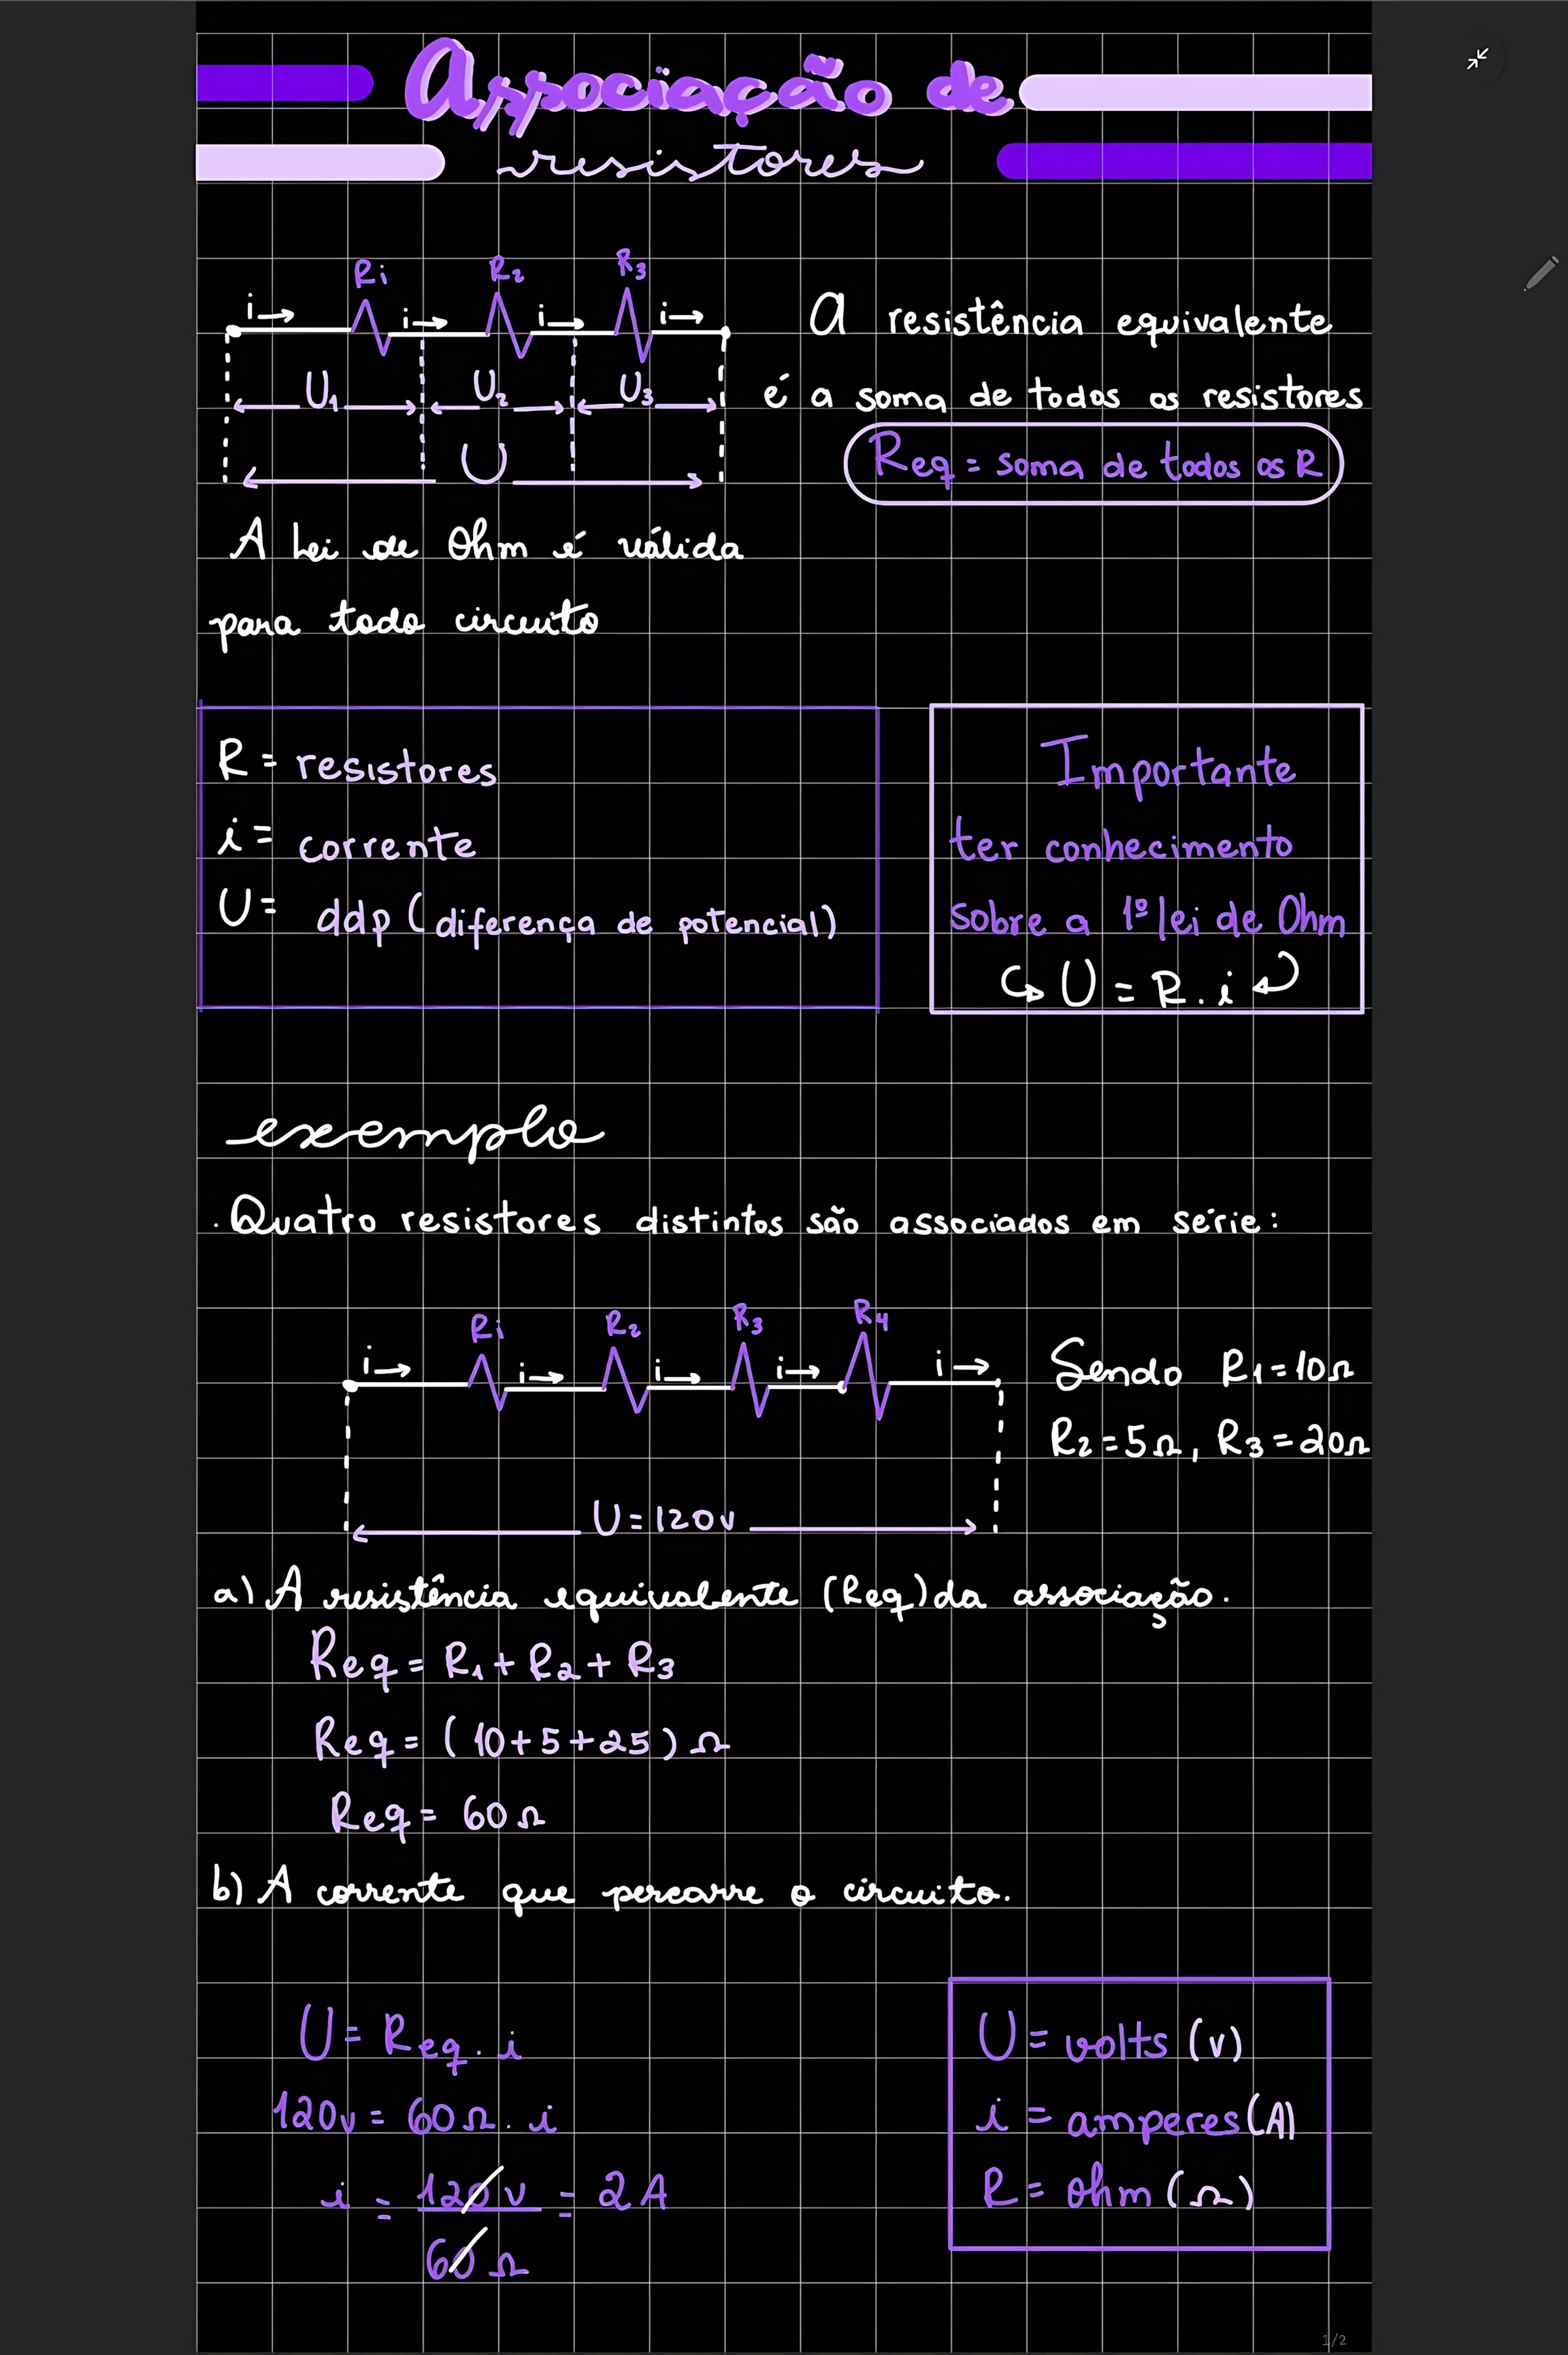 Associação de
resistores
Ri R2 R3
i i i i
U1 U2 U3
U
A resistência equivalente
é a soma de todos os resistores
Req = soma de todos os R
A Lei de Ohm é válida
para todo circuito
R = resistores
i = corrente
U = ddp (diferença de potencial)
Importante
ter conhecimento
sobre a 1º lei de Ohm
U = R . i
exemplo
. Quatro resistores distintos são associados em série:
Ri R2 R3 R4
i i i i i
U = 120v
Sendo R1 = 10Ω
R2 = 5Ω, R3 = 20Ω
a) A resistência equivalente (Req) da associação.
Req = R1 + R2 + R3
Req = (10+5+25) Ω
Req = 60 Ω
b) A corrente que percorre o circuito.
U = Req . i
120v = 60 Ω . i
i = 120 v = 2 A
60 Ω
U = volts (v)
i = amperes (A)
R = ohm (Ω)
1/2